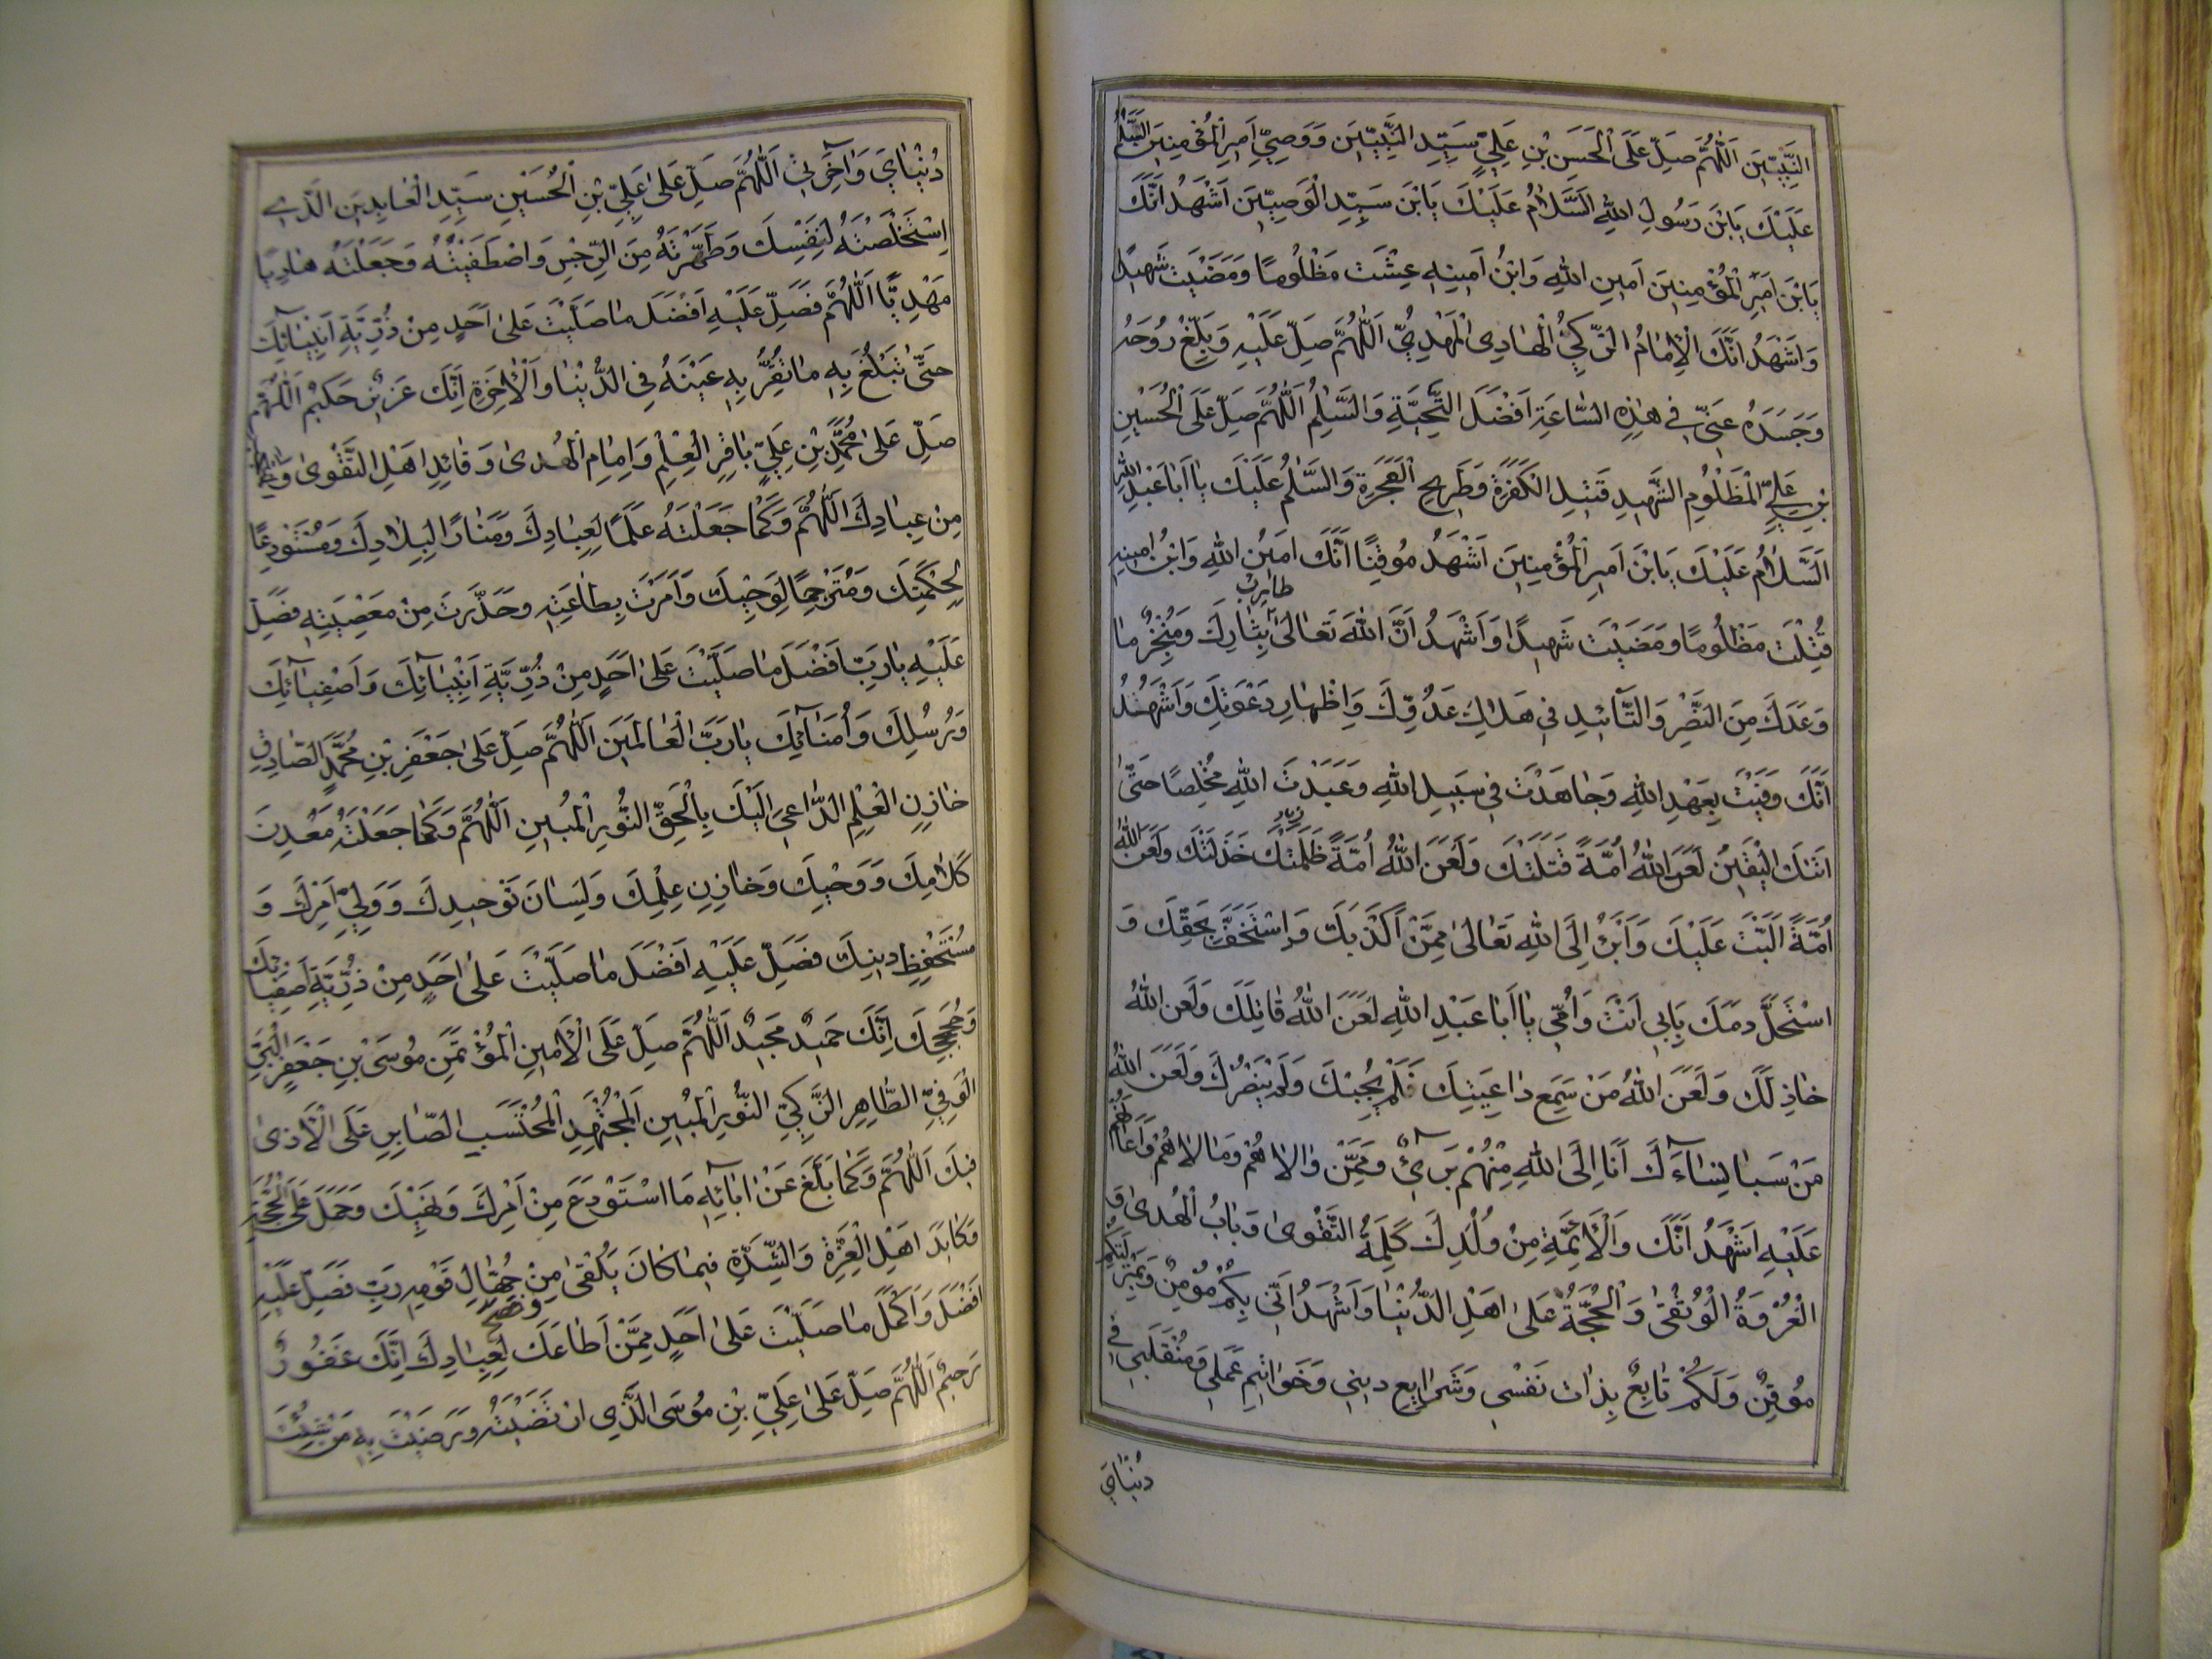 النَّبِيّٖينَ اَللّٰهُمَّ صَلِّ عَلَى الْحَسَنِ بْنِ عَلِيٍّ سَيِّدِ النَّبِيّٖينَ وَوَصِيِّ اَمِيرِ الْمُؤْمِنِينَ السَّلٰمُ
عَلَيْكَ يَابْنَ رَسُولِ اللّٰهِ اَلسَّلَامُ عَلَيْكَ يَابْنَ سَيِّدِ الْوَصِيّٖينَ اَشْهَدُ اَنَّكَ
يَابْنَ اَمِيرِ الْمُؤْمِنِينَ اَمِينِ اللّٰهِ وَابْنُ اَمِينِهِ عِشْتَ مَظْلُومًا وَمَضَيْتَ شَهِيدًا
وَاَشْهَدُ اَنَّكَ الْاِمَامُ الزَّكِيُّ الْهَادِي الْمَهْدِيُّ اَللّٰهُمَّ صَلِّ عَلَيْهِ وَبَلِّغْ رُوحَهُ
وَجَسَدَهُ عَنِّي فِي هٰذِهِ السَّاعَةِ اَفْضَلَ التَّحِيَّةِ وَالسَّلٰمِ اَللّٰهُمَّ صَلِّ عَلَى الْحُسَيْنِ
بْنِ عَلِيٍّ الْمَظْلُومِ الشَّهِيدِ قَتِيلِ الْكَفَرَةِ وَطَرِيحِ الْفَجَرَةِ وَالسَّلٰمُ عَلَيْكَ يَا اَبَا عَبْدِ اللّٰهِ
اَلسَّلَامُ عَلَيْكَ يَابْنَ اَمِيرِ الْمُؤْمِنِينَ اَشْهَدُ مُوقِنًا اَنَّكَ اَمِينُ اللّٰهِ وَابْنُ اَمِينِهِ
قُتِلْتَ مَظْلُومًا وَمَضَيْتَ شَهِيدًا وَاَشْهَدُ اَنَّ اللّٰهَ تَعَالٰى بِثَارِكَ وَمُنْجِزٌ مَا
وَعَدَكَ مِنَ النَّصْرِ وَالتَّأْيِيدِ فِي هَلَاكِ عَدُوِّكَ وَاِظْهَارِ دَعْوَتِكَ وَاَشْهَدُ
اَنَّكَ وَفَيْتَ بِعَهْدِ اللّٰهِ وَجَاهَدْتَ فِي سَبِيلِ اللّٰهِ وَعَبَدْتَ اللّٰهَ مُخْلِصًا حَتّٰى
اَتٰكَ الْيَقِينُ لَعَنَ اللّٰهُ اُمَّةً قَتَلَتْكَ وَلَعَنَ اللّٰهُ اُمَّةً ظَلَمَتْكَ خَذَلَتْكَ وَلَعَنَ اللّٰهُ
اُمَّةً اَلَبَّتْ عَلَيْكَ وَاَبْرَءُ اِلَى اللّٰهِ تَعَالٰى مِمَّنْ اَكْذَبَكَ وَاسْتَخَفَّ بِحَقِّكَ وَ
اسْتَحَلَّ دَمَكَ بِاَبِي اَنْتَ وَاُمِّي يَا اَبَا عَبْدِ اللّٰهِ لَعَنَ اللّٰهُ قَاتِلَكَ وَلَعَنَ اللّٰهُ
خَاذِلَكَ وَلَعَنَ اللّٰهُ مَنْ سَمِعَ دَاعِيَتَكَ فَلَمْ يُجِبْكَ وَلَمْ يَنْصُرْكَ وَلَعَنَ اللّٰهُ
مَنْ سَبَا نِسَاءَكَ اَنَا اِلَى اللّٰهِ مِنْهُمْ بَرِيءٌ وَمِمَّنْ وَالَاهُمْ وَمَالَاهُمْ وَاَعَانَهُمْ
عَلَيْهِ اَشْهَدُ اَنَّكَ وَالْاَئِمَّةِ مِنْ وُلْدِكَ كَلِمَةُ التَّقْوٰى وَبَابُ الْهُدٰى وَ
الْعُرْوَةُ الْوُثْقٰى وَالْحُجَّةُ عَلٰى اَهْلِ الدُّنْيَا وَاَشْهَدُ اَنِّي بِكُمْ مُؤْمِنٌ وَبِمَنْزِلَتِكُمْ
مُوقِنٌ وَلَكُمْ تَابِعٌ بِذَاتِ نَفْسِي وَشَرَايِعِ دِينِي وَخَوَاتِيمِ عَمَلِي وَمُنْقَلَبِي فِي
دُنْيَايَ
دُنْيَايَ وَاٰخِرَتِي اَللّٰهُمَّ صَلِّ عَلٰى عَلِيِّ بْنِ الْحُسَيْنِ سَيِّدِ الْعَابِدِينَ الَّذِي
اسْتَخْلَصْتَهُ لِنَفْسِكَ وَطَهَّرْتَهُ مِنَ الرِّجْسِ وَاصْطَفَيْتَهُ وَجَعَلْتَهُ هَادِيًا
مَهْدِيًّا اَللّٰهُمَّ فَصَلِّ عَلَيْهِ اَفْضَلَ مَا صَلَّيْتَ عَلٰى اَحَدٍ مِنْ ذُرِّيَّةِ اَنْبِيَائِكَ
حَتّٰى تَبْلُغَ بِهِ مَا تُقِرُّ بِهِ عَيْنَهُ فِي الدُّنْيَا وَالْاٰخِرَةِ اِنَّكَ عَزِيزٌ حَكِيمٌ اَللّٰهُمَّ
صَلِّ عَلٰى مُحَمَّدِ بْنِ عَلِيٍّ بَاقِرِ الْعِلْمِ وَاِمَامِ الْهُدٰى وَقَائِدِ اَهْلِ التَّقْوٰى
مِنْ عِبَادِكَ اَللّٰهُمَّ وَكَمَا جَعَلْتَهُ عَلَمًا لِعِبَادِكَ وَمَنَارًا لِبِلَادِكَ وَمُسْتَوْدِعًا
لِحِكْمَتِكَ وَمُتَرْجِمًا لِوَحْيِكَ وَاَمَرْتَ بِطَاعَتِهِ وَحَذَّرْتَ مِنْ مَعْصِيَتِهِ فَصَلِّ
عَلَيْهِ يَارَبِّ اَفْضَلَ مَا صَلَّيْتَ عَلٰى اَحَدٍ مِنْ ذُرِّيَّةِ اَنْبِيَائِكَ وَاَصْفِيَائِكَ
وَرُسُلِكَ وَاُمَنَائِكَ يَارَبَّ الْعَالَمِينَ اَللّٰهُمَّ صَلِّ عَلٰى جَعْفَرِ بْنِ مُحَمَّدٍ الصَّادِقِ
خَازِنِ الْعِلْمِ الدَّاعِي اِلَيْكَ بِالْحَقِّ النُّورِ الْمُبِينِ اَللّٰهُمَّ وَكَمَا جَعَلْتَهُ مَعْدِنَ
كَلَامِكَ وَوَحْيِكَ وَخَازِنِ عِلْمِكَ وَلِسَانَ تَوْحِيدِكَ وَوَلِيَّ اَمْرِكَ وَ
مُسْتَحْفِظِ دِينِكَ فَصَلِّ عَلَيْهِ اَفْضَلَ مَا صَلَّيْتَ عَلٰى اَحَدٍ مِنْ ذُرِّيَّةِ اَصْفِيَائِكَ
وَحُجَجِكَ اِنَّكَ حَمِيدٌ مَجِيدٌ اَللّٰهُمَّ صَلِّ عَلَى الْاَمِينِ الْمُؤْتَمَنِ مُوسَى بْنِ جَعْفَرٍ الْبَرِّ
الْوَفِيِّ الطَّاهِرِ الزَّكِيِّ النُّورِ الْمُبِينِ الْمُجْتَهِدِ الْمُحْتَسِبِ الصَّابِرِ عَلَى الْاَذٰى
فِيكَ اَللّٰهُمَّ وَكَمَا بَلَّغَ عَنْ اٰبَائِهِ مَا اسْتَوْدَعَ مِنْ اَمْرِكَ وَنَهْيِكَ وَحَمَلَ عَلَى الْمَحَجَّةِ
وَكَابَدَ اَهْلَ الْعِزَّةِ وَالشِّدَّةِ فِيمَا كَانَ يَلْقٰى مِنْ جُهَّالِ قَوْمِهِ رَبِّ فَصَلِّ عَلَيْهِ
اَفْضَلَ وَاَكْمَلَ مَا صَلَّيْتَ عَلٰى اَحَدٍ مِمَّنْ اَطَاعَكَ وَنَصَحَ لِعِبَادِكَ اِنَّكَ غَفُورٌ
رَحِيمٌ اَللّٰهُمَّ صَلِّ عَلٰى عَلِيِّ بْنِ مُوسَى الَّذِي ارْتَضَيْتَهُ وَرَضَيْتَ بِهِ مَنْ شِئْتَ